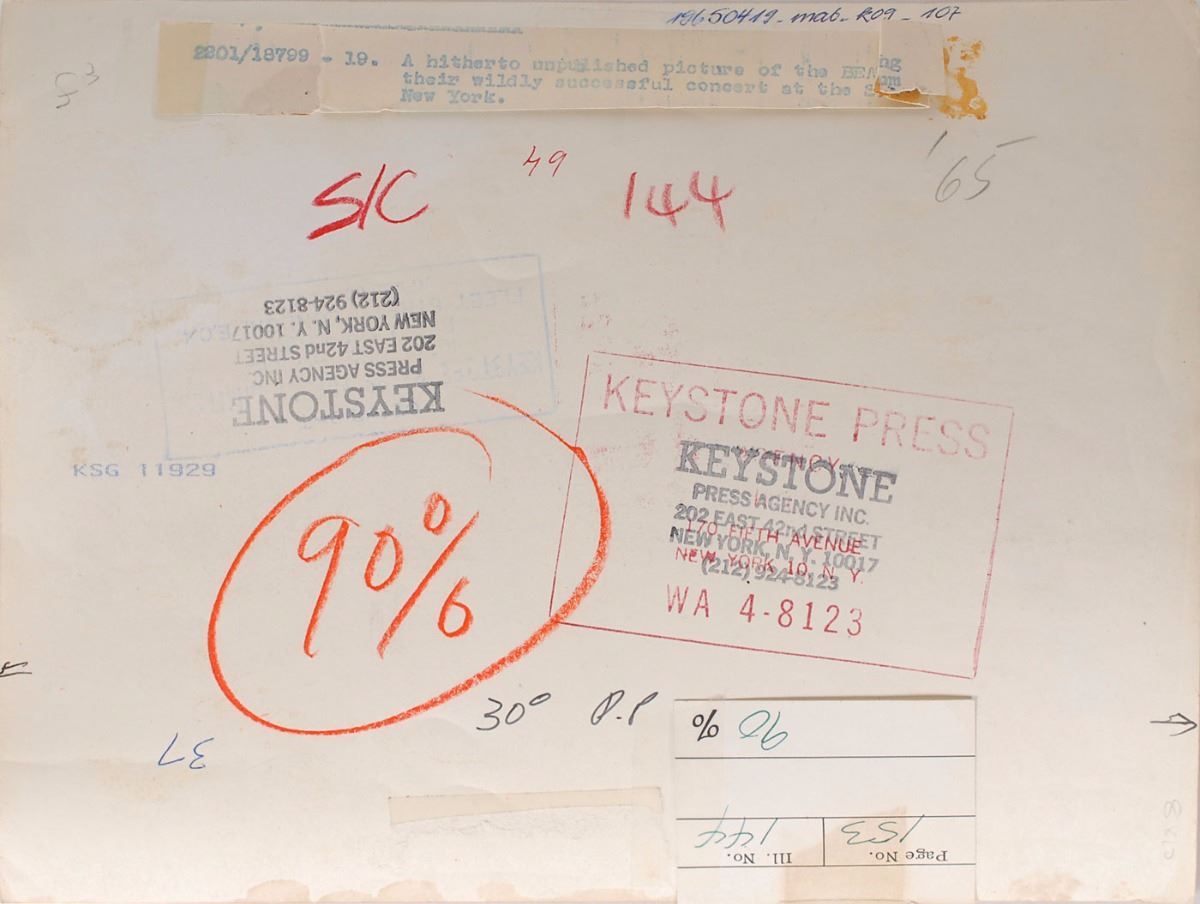 19650419-mab-R09-107
2201/18799 - 19. A hitherto unpublished picture of the BEA ng
their wildly successful concert at the S um
New York.
'65
S/C 49 144
KEYSTONE
PRESS AGENCY INC.
202 EAST 42nd STREET
NEW YORK, N. Y. 10017
(212) 924-8123
KEYSTONE PRESS
AGENCY
170 FIFTH AVENUE
NEW YORK 10, N. Y.
WA 4-8123
KEYSTONE
PRESS AGENCY INC.
202 EAST 42nd STREET
NEW YORK, N. Y. 10017
(212) 924-8123
KSG 11929
90%
30° P.P
37
Page No. 153 Ill. No. 144
90 %